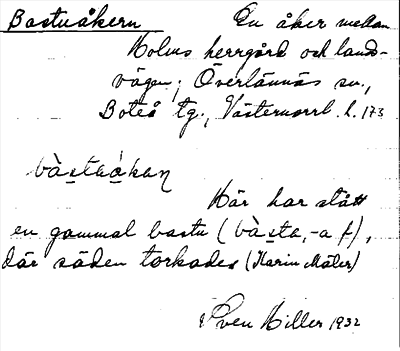 Bastuåkern En åker mellan
Holms herrgård och lands-
vägen; Överlännäs sn.,
Boteå tg., Västernorrl. l. 173
bàstaåkaɲ
Här har stått
en gammal bastu (bàsta, -a f),
där säden torkades (Karin Mäler)
Sven Hiller 1932